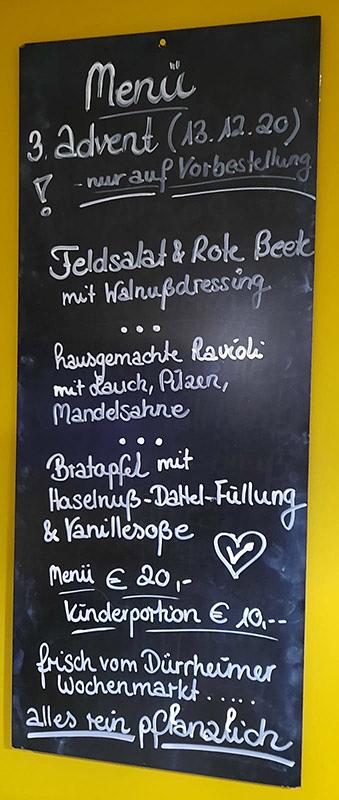 Menü
3. Advent (13.12.20)
! - nur auf Vorbestellung
Feldsalat & Rote Beete
mit Walnußdressing
...
hausgemachte Ravioli
mit Lauch, Pilzen,
Mandelsahne
...
Bratapfel mit
Haselnuß-Dattel-Füllung
& Vanillesoße
Menü € 20,-
Kinderportion € 10,--
frisch vom Dürrheimer
Wochenmarkt.....
alles rein pflanzlich